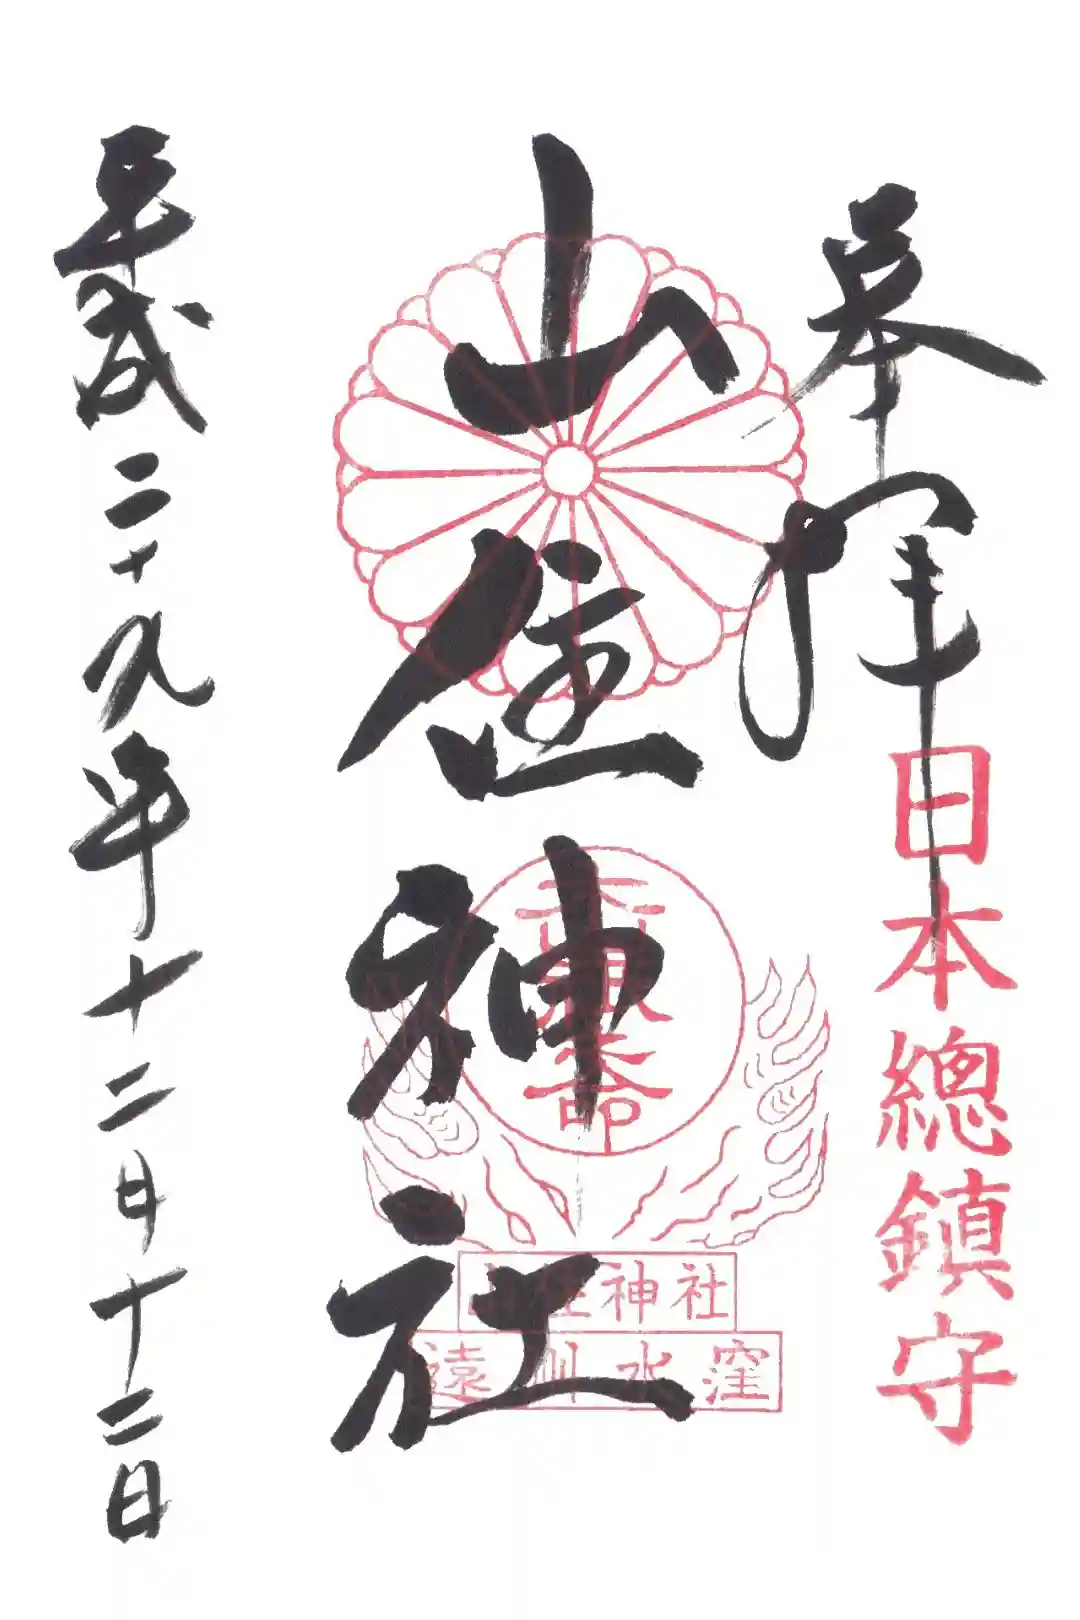 奉拝
日本總鎮守
山住神社
山住神社
遠州水窪
平成二十九年十二月十二日